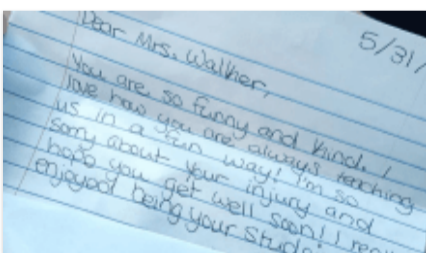 5/31/
Dear Mrs. Walker,
You are so funny and kind. I
love how you are always teaching
us in a fun way! I'm so
sorry about your injury and
hope you get well soon! I
enjoyed being your